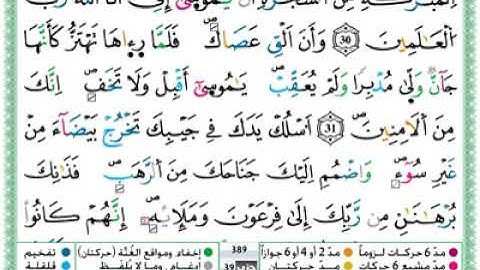 الْمُبَٰرَكَةِ مِنَ الشَّجَرَةِ أَن يَٰمُوسَىٰٓ إِنِّىٓ أَنَا اللَّهُ رَبُّ
الْعَٰلَمِينَ 30 وَأَنْ أَلْقِ عَصَاكَ فَلَمَّا رَءَاهَا تَهْتَزُّ كَأَنَّهَا
جَآنٌّ وَلَّىٰ مُدْبِرًا وَلَمْ يُعَقِّبْ يَٰمُوسَىٰٓ أَقْبِلْ وَلَا تَخَفْ إِنَّكَ
مِنَ الْأَمِنِينَ 31 اسْلُكْ يَدَكَ فِى جَيْبِكَ تَخْرُجْ بَيْضَآءَ مِنْ
غَيْرِ سُوٓءٍ وَاضْمُمْ إِلَيْكَ جَنَاحَكَ مِنَ الرَّهَبِ فَذَٰنِكَ
بُرْهَٰنَٰنِ مِن رَّبِّكَ إِلَىٰ فِرْعَوْنَ وَمَلَإِي۟هِۦٓ إِنَّهُمْ كَانُوا
مدّ 6 حركات لزوماً مدّ 2 أو 4 أو 6 جوازاً 389 إخفاء، ومواقع الغُنَّة (حركتان) تفخيم
مدّ مشبع 6 حركات مدّ حركتان إدغام، وما لا يُلفظ قلقلة